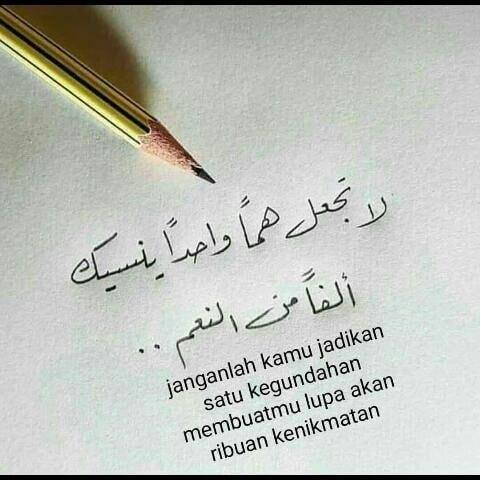 لا تجعل هماً واحداً ينسيك
ألفاً من النعم ..
janganlah kamu jadikan
satu kegundahan
membuatmu lupa akan
ribuan kenikmatan